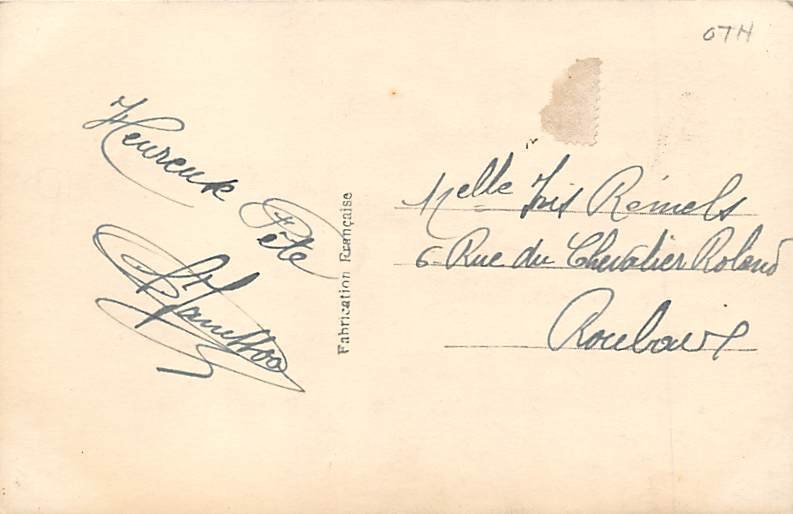 OTH
Heureuse
Fête
Fabrication Française
Melle Iris Remels
6 Rue du Chevalier Roland
Roubaix